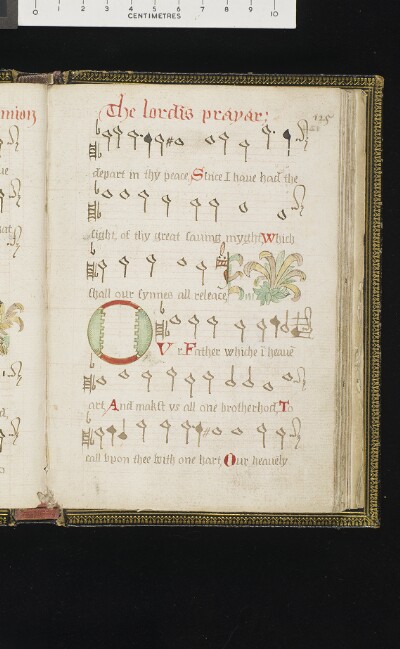 0 1 2 3 4 5 6 7 8 9 10
CENTIMETRES
The lordis prayar:
125
depart in thy peace, Since I have had the
sight, of thy great saving myght Which
shall our synnes all release,
O Vr Father whiche i heaue
art, And makst vs all one brotherhod, To
call vpon thee with one hart, Our heauely